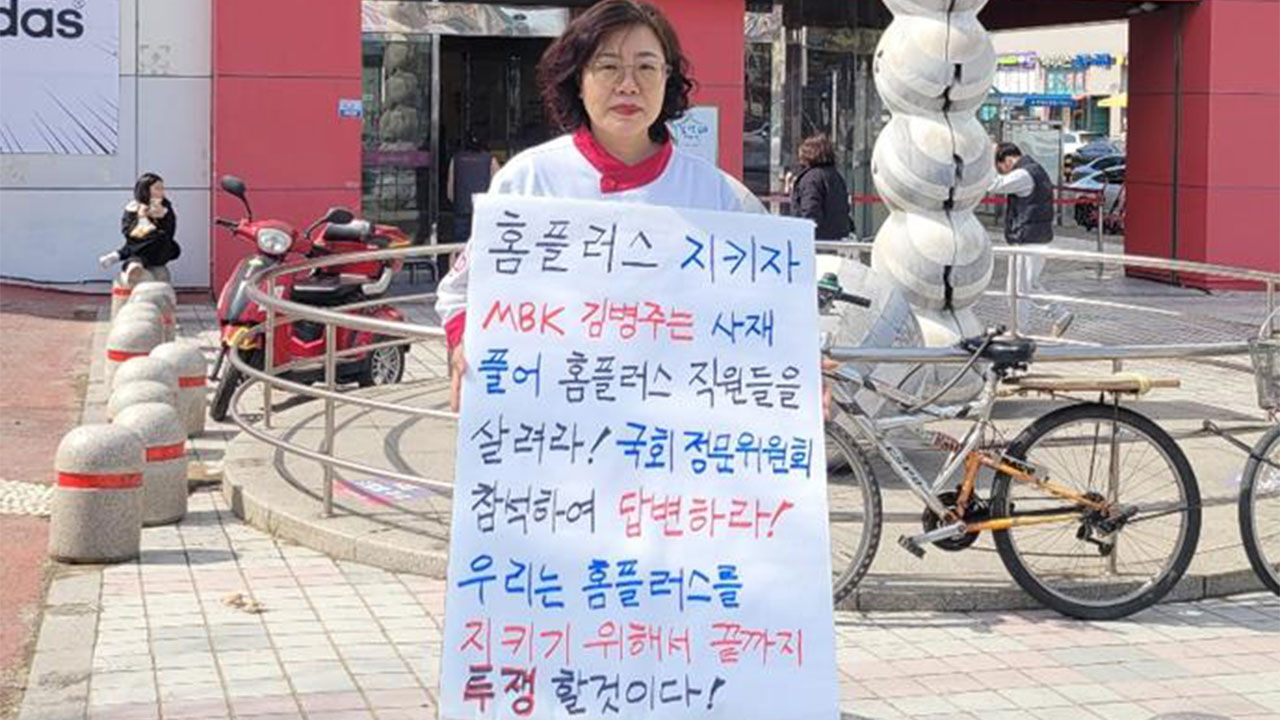 das
홈플러스 지키자
MBK 김병주는 사재
풀어 홈플러스 직원들을
살려라! 국회 정문위원회
참석하여 답변하라!
우리는 홈플러스를
지키기 위해서 끝까지
투쟁 할것이다!